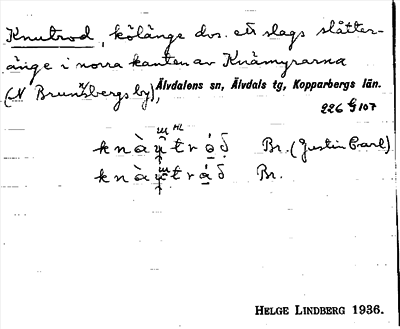 Knutrod, kölänge dvs. ett slags slåtter-
änge i norra kanten av Knämyrarna
(N Brunnsbergs by), Älvdalens sn, Älvdals tg, Kopparbergs län.
226 G 107
Br. (Justin Carl)
Br.
HELGE LINDBERG 1936.